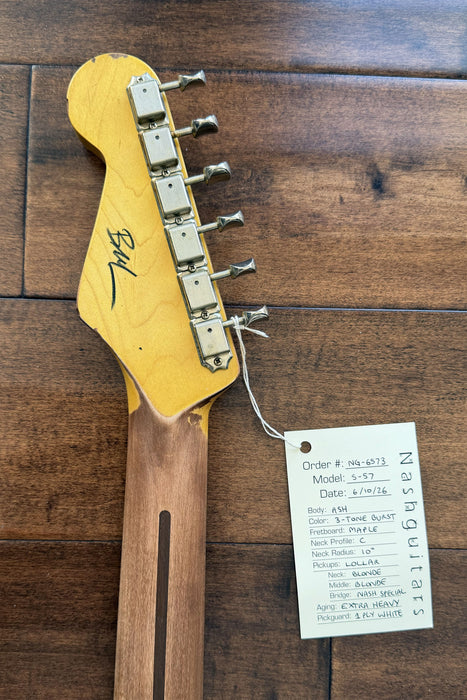 Nashguitars
Order #: NG-6573
Model: S-57
Date: 6/10/26
Body: ASH
Color: 3-TONE BURST
Fretboard: MAPLE
Neck Profile: C
Neck Radius: 10"
Pickups: LOLLAR
Neck: BLONDE
Middle: BLONDE
Bridge: NASH SPECIAL
Aging: EXTRA HEAVY
Pickguard: 1 PLY WHITE